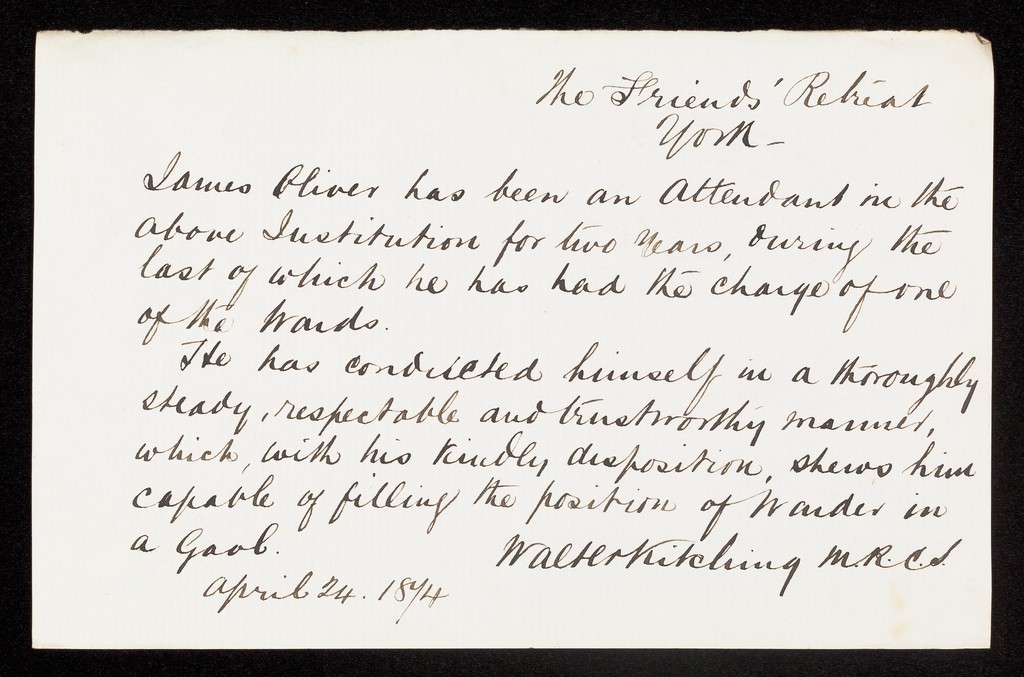 The Friends' Retreat
York -
James Oliver has been an Attendant in the
above Institution for two years, during the
last of which he has had the charge of one
of the Wards.
He has conducted himself in a thoroughly
steady, respectable and trustworthy manner,
which, with his kindly disposition, shews him
capable of filling the position of Warder in
a Gaol.
Walter Kitching M.R.C.S.
April 24. 1874